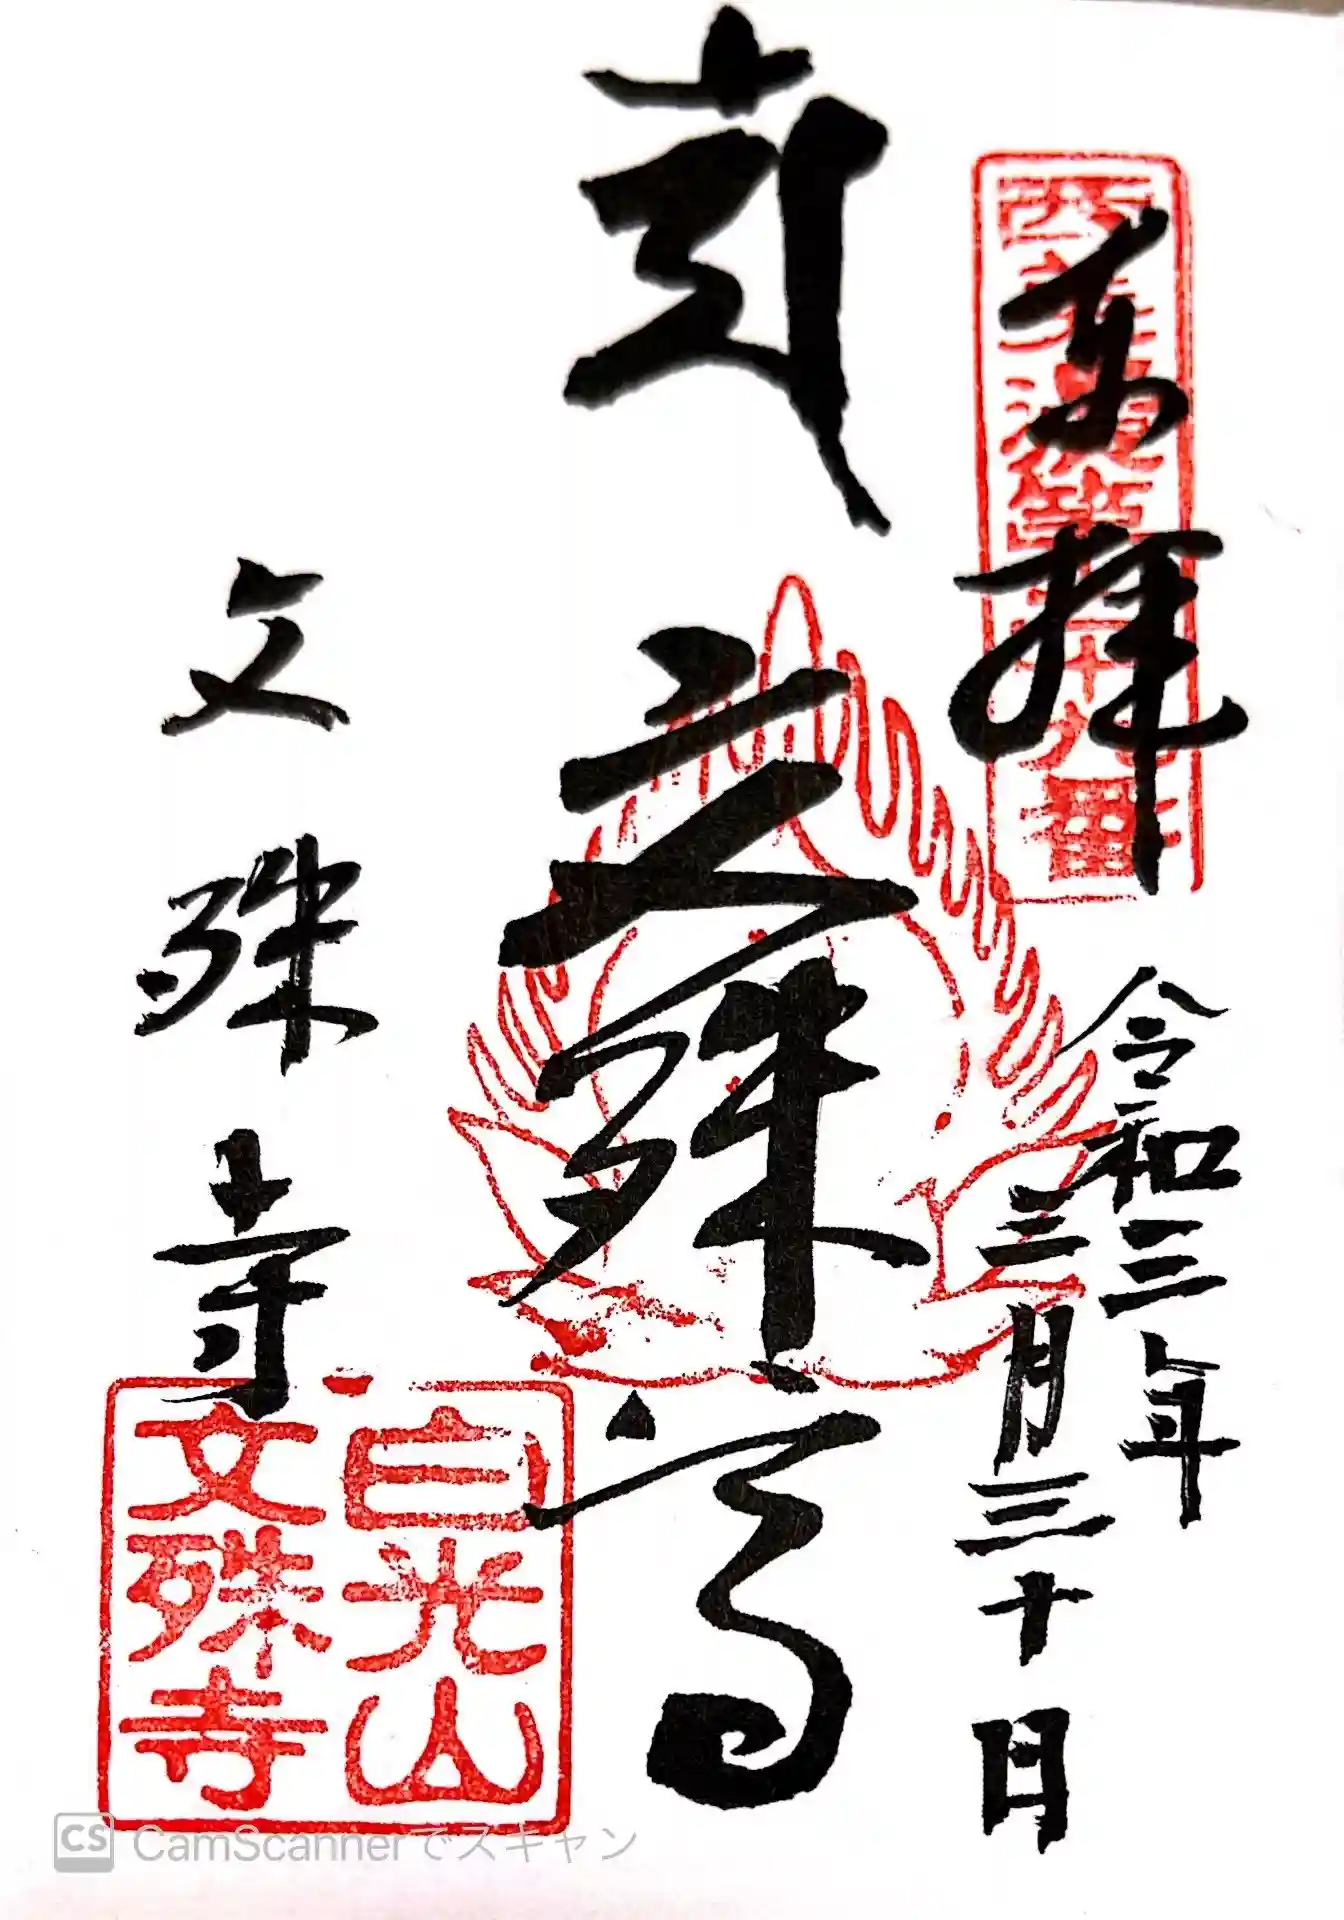 西美濃第二十九番
奉拝
令和三年
三月三十日
文殊
文殊寺
白光山
文殊寺
CS CamScannerでスキャン